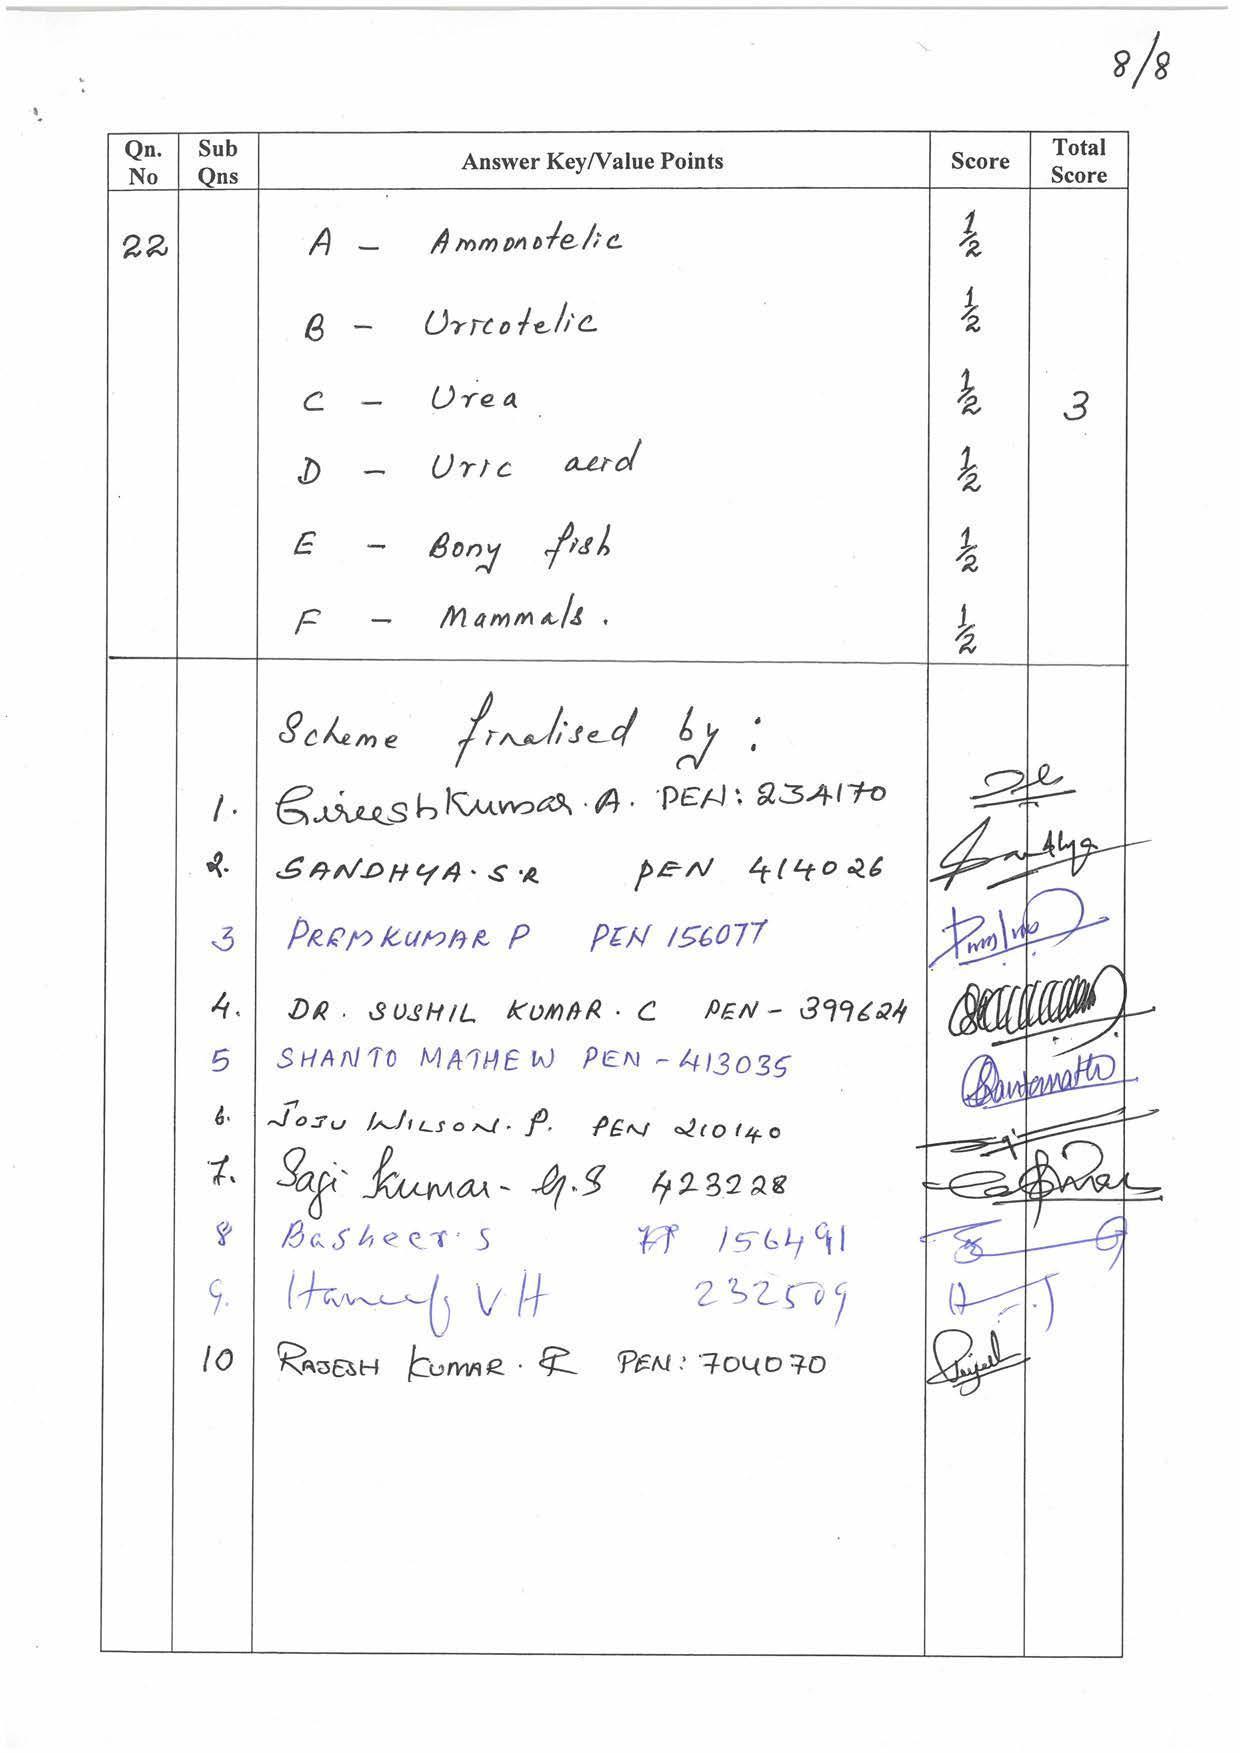 8/8
Qn. No Sub Qns Answer Key/Value Points Score Total Score
22 A - Ammonotelic 1/2
B - Uricotelic 1/2
C - Urea 1/2 3
D - Uric acid 1/2
E - Bony fish 1/2
F - Mammals. 1/2
Scheme finalised by :
1. Gireesh Kumar. A. PEN: 234170
2. SANDHYA. S. R PEN 414026
3 PREMKUMAR P PEN 156077
4. DR. SUSHIL KUMAR. C PEN - 399624
5 SHANTO MATHEW PEN - 413035
6. JOJU WILSON. P. PEN 210140
7. Saji Kumar - G.S 423228
8 Basheer. S 156491
9. Haneefa V H 232509
10 RAJESH KUMAR. R PEN: 704070